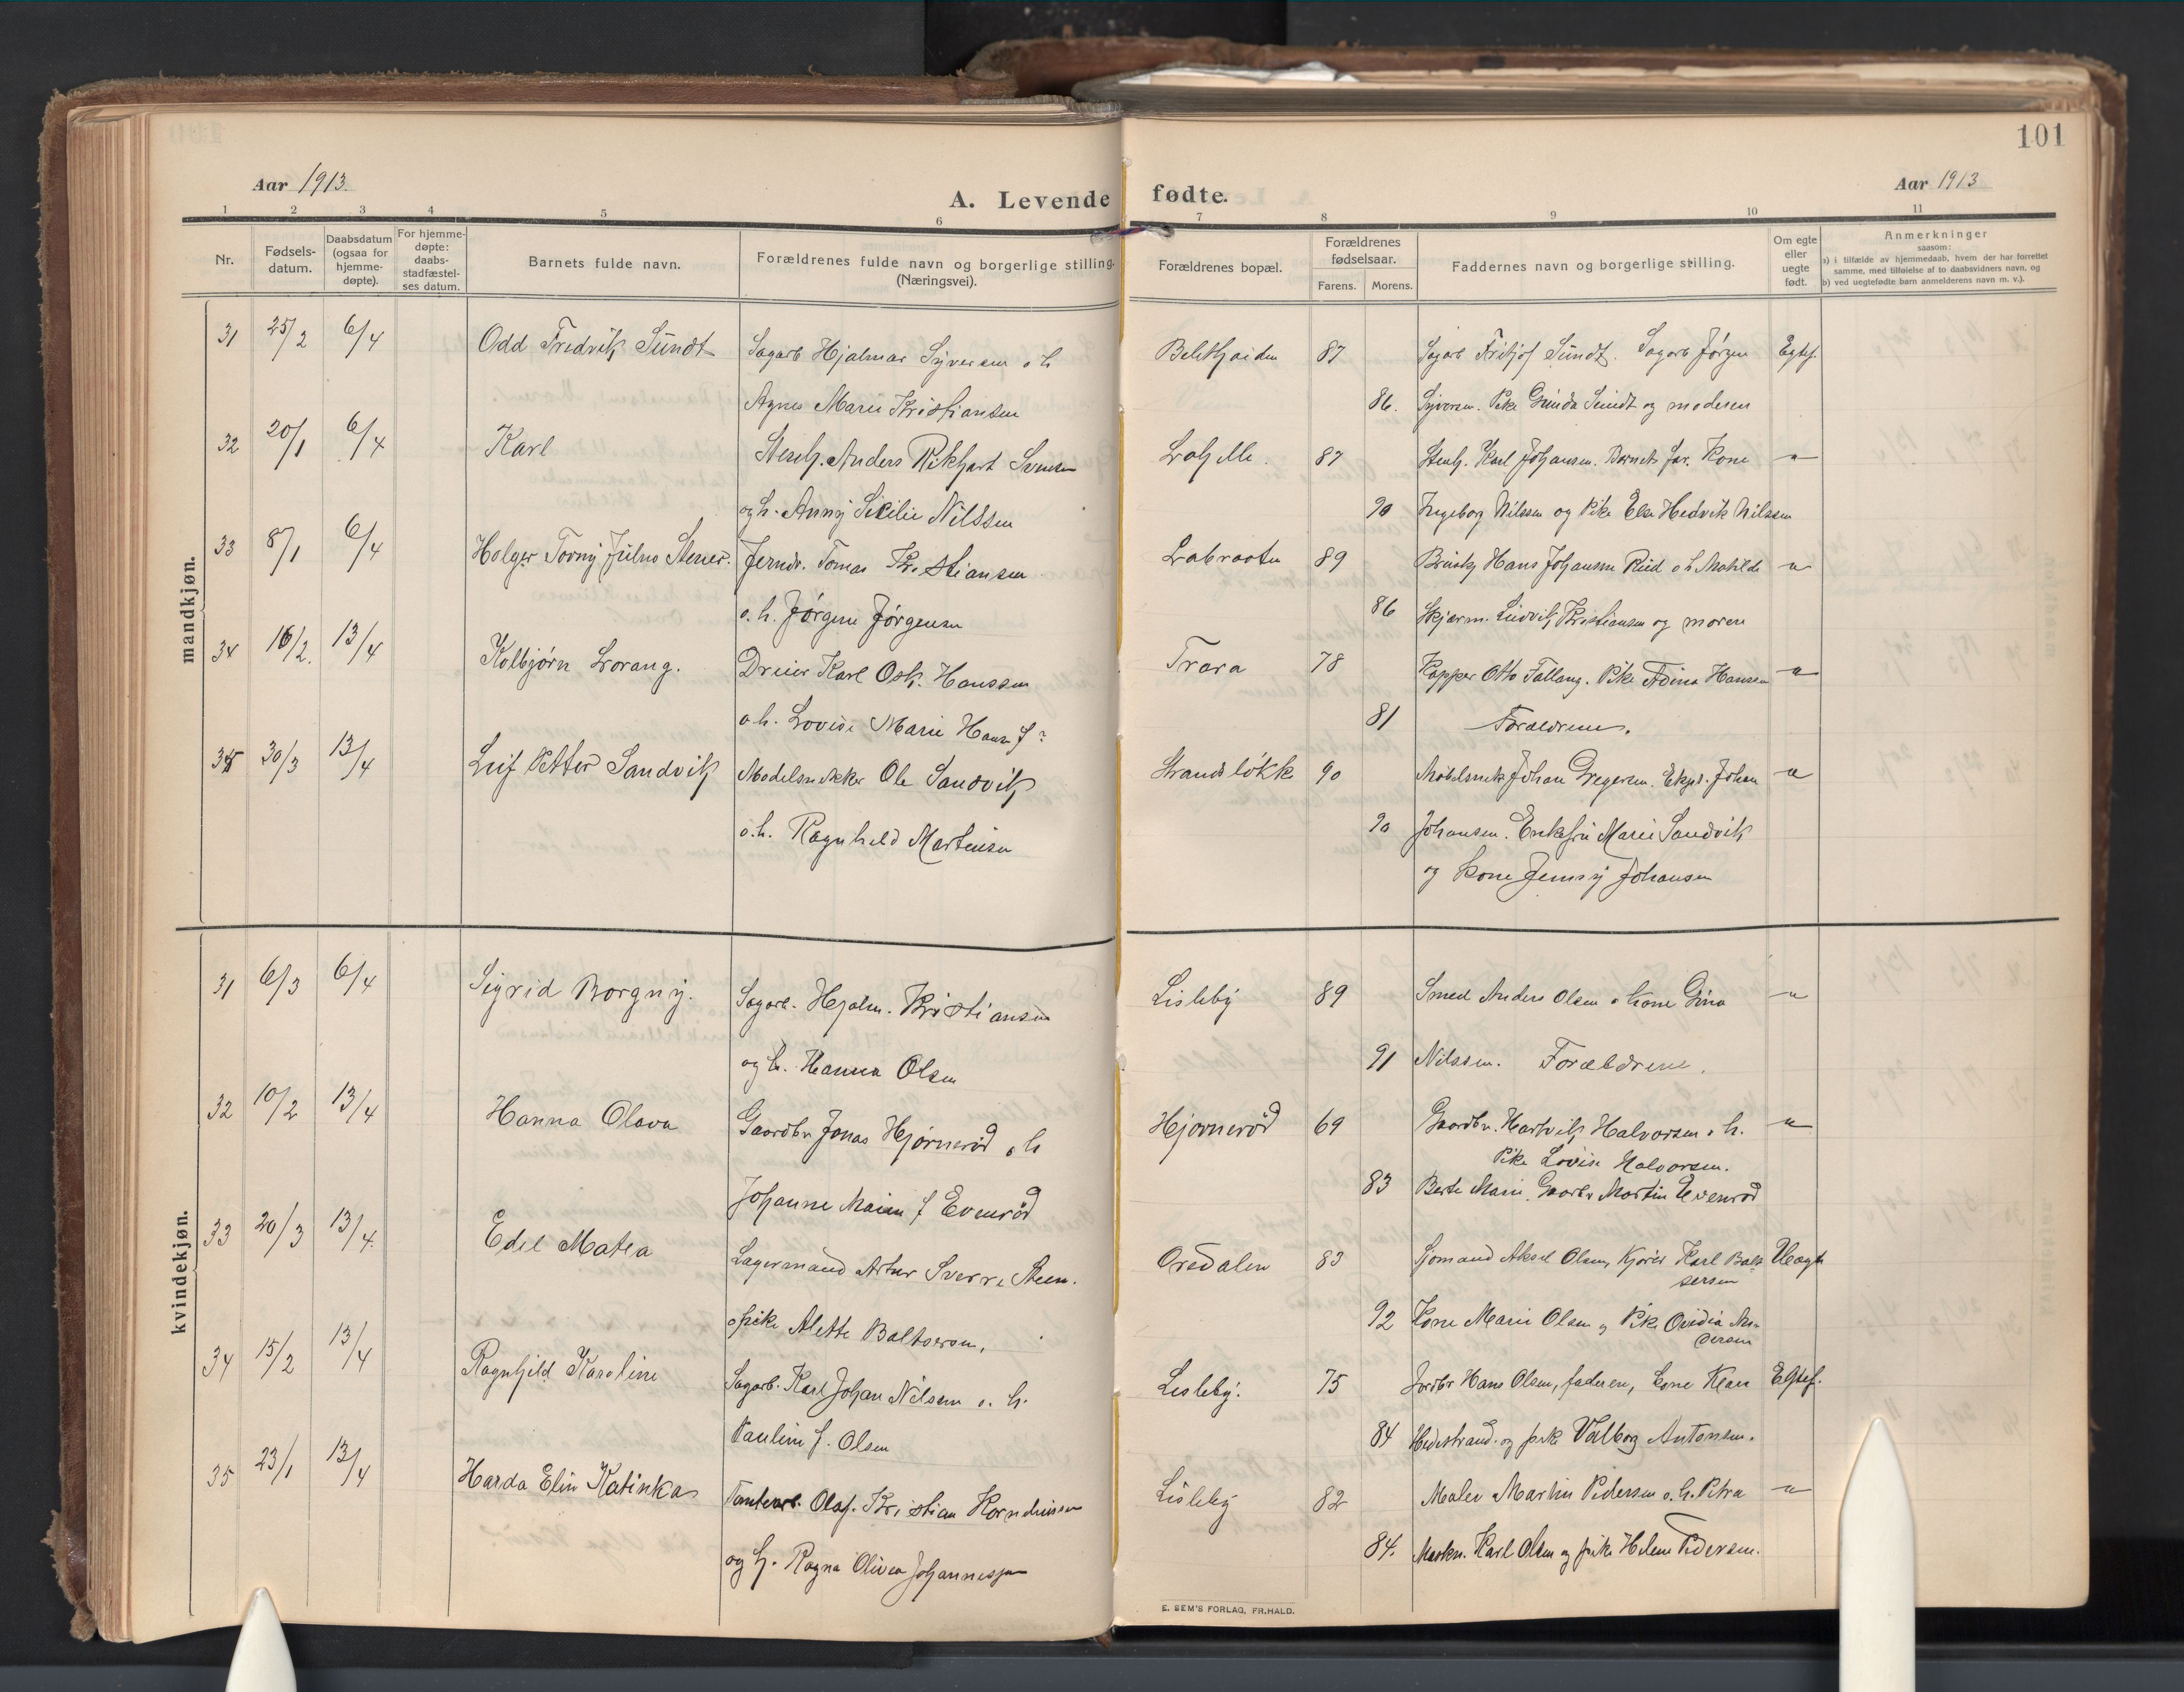 101
Aar 1913.
A. Levende fødte.
Aar 1913
1 2 3 4 5 6 7 8 9 10 11
Nr.
Fødsels-
datum.
Daabsdatum
(ogsaa for
hjemme-
døpte).
For hjemme-
døpte:
daabs-
stadfæstel-
ses datum.
Barnets fulde navn.
Forældrenes fulde navn og borgerlige stilling.
(Næringsvei).
Forældrenes bopæl.
Forældrenes
fødselsaar.
Farens. Morens.
Faddernes navn og borgerlige stilling.
Om egte
eller
uegte
født.
Anmerkninger
saasom:
a) i tilfælde av hjemmedaab, hvem der har forrettet
samme, med tilføielse af to daabsvidners navn, og
b) ved uegtefødte børn anmelderens navn m. v.).
mandkjøn.
31 25/2 6/4 Odd Fredrik Sundt Sagarb Hjalmar Syversen o h 87 Sagarb Fritjof Sundt. Sagarb Jørgen Egtef.
Agnes Marie Kristiansen 86. Syversen. Pike Gunda Sundt og moderen
32 20/1 6/4 Karl Stenh. Anders Rikhart Svensen 87 Stenh. Karl Johansen. Barnets far. Kone -"-
og h. Anny Sicilie Nilssen 90 Ingeborg Nilssen og Pike Else Hedvik Nilssen
33 8/1 6/4 Holger Tovny Julno Stener. Jerndr. Tomas Kristiansen Labraaten 89 Hans Johansen Rud o h Matilde -"-
o. h. Jørgine Jørgensen 86 Skjærm. Ludvik Kristiansen og moren
34 16/2. 13/4 Kolbjørn Lorang. Dreier Karl Osk. Hanssen Trara 78 Kapper Otto Fallang. Pike Adina Hansen -"-
o. h. Lovise Marie Hans f? 81 Foraldrene.
35 30/3 13/4 Leif Petter Sandvik Modelsnekker Ole Sandvik 90 Møbelsnek Johan Gregersen. Eksp. Johan -"-
o. h. Ragnhild Martinsen 90 Johansen. Enkefru Marie Sandvik
og Kone Jenny Johansen
kvindekjøn.
31 6/3 6/4 Sigrid Borgny. Sagarb. Hjalm. Kristiansen Lisleby 89 Smed Anders Olsen o kone Gina -"-
og h. Hanna Olsen 91 Nilssen. Forældrene.
32 10/2 13/4 Hanna Olava Gaardbr Jonas Hjørnerød o h Hjørnerød 69 Gaardbr. Hartvik Halvorsen o h. -"-
Pike Lovise Halvorsen.
Johanne Marie f Evenrød 83 Berte Marie. Gaardbr Martin Evenrød
33 20/3 13/4. Edel Matea Lagermand Artur Sverre Steen. Oredalen 83 Sjømand Aksel Olsen, Kjører Karl Balt Uegte
sersen
o pike Alette Baltsersen, 92 Kone Marie Olsen og Pike Ovidia An-
dersen
34 15/2 13/4 Ragnhild Karoline Sagarb. Karl Johan Nilsen o. h. Lisleby. 75 Jordbr Hans Olsen, faderen, kone Klara Egtef.
Pauline f. Olsen 84 Hedestrand. og pike Valborg Antonsen.
35 23/1 13/4 Harda Elin Katinka Olaf. Kristian Korneliussen Lisleby 82 Maler Martin Pedersen o. h. Petra -"-
og h. Ragna Olivea Johannessen 84. Maskn. Karl Olsen og pike Helene Pedersen.
E. SEM'S FORLAG, FR.HALD.